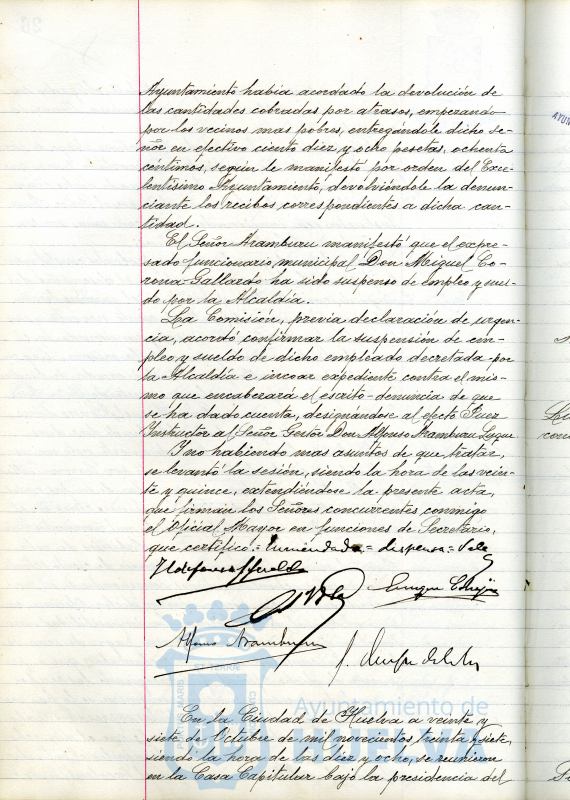 Ayuntamiento habia acordado la devolución de
las cantidades cobradas por atrasos, empezando
por los vecinos mas pobres, entregándole dicho se-
ñor en efectivo ciento diez y ocho pesetas, ochenta
céntimos, según le manifestó por orden del Exce-
lentísimo Ayuntamiento, devolviéndole la denun-
ciante los recibos correspondientes a dicha can-
tidad.
El Señor Aramburu manifestó que el expre-
sado funcionario municipal Don Miguel Co-
rona Gallardo ha sido suspenso de empleo y suel-
do por la Alcaldía.
La Comisión, previa declaración de urgen-
cia, acordó confirmar la suspensión de em-
pleo y sueldo de dicho empleado decretada por
la Alcaldía e incoar expediente contra el mis-
mo que encabezará el escrito-denuncia de que
se ha dado cuenta, designándose al efecto Juez
Instructor al Señor Gestor Don Alfonso Aramburu Luque
Y no habiendo mas asuntos de que tratar,
se levantó la sesión, siendo la hora de las vein-
te y quince, extendiéndose la presente acta,
que firman los Señores concurrentes conmigo
el Oficial Mayor en funciones de Secretario,
que certifico = Enmendado = despensa = Vale
Alfonso Aramburu
Ayuntamiento de
HUELVA
En la Ciudad de Huelva a veinte y
siete de Octubre de mil novecientos treinta y siete,
siendo la hora de las diez y ocho, se reunieron
en la Casa Capitular bajo la presidencia del